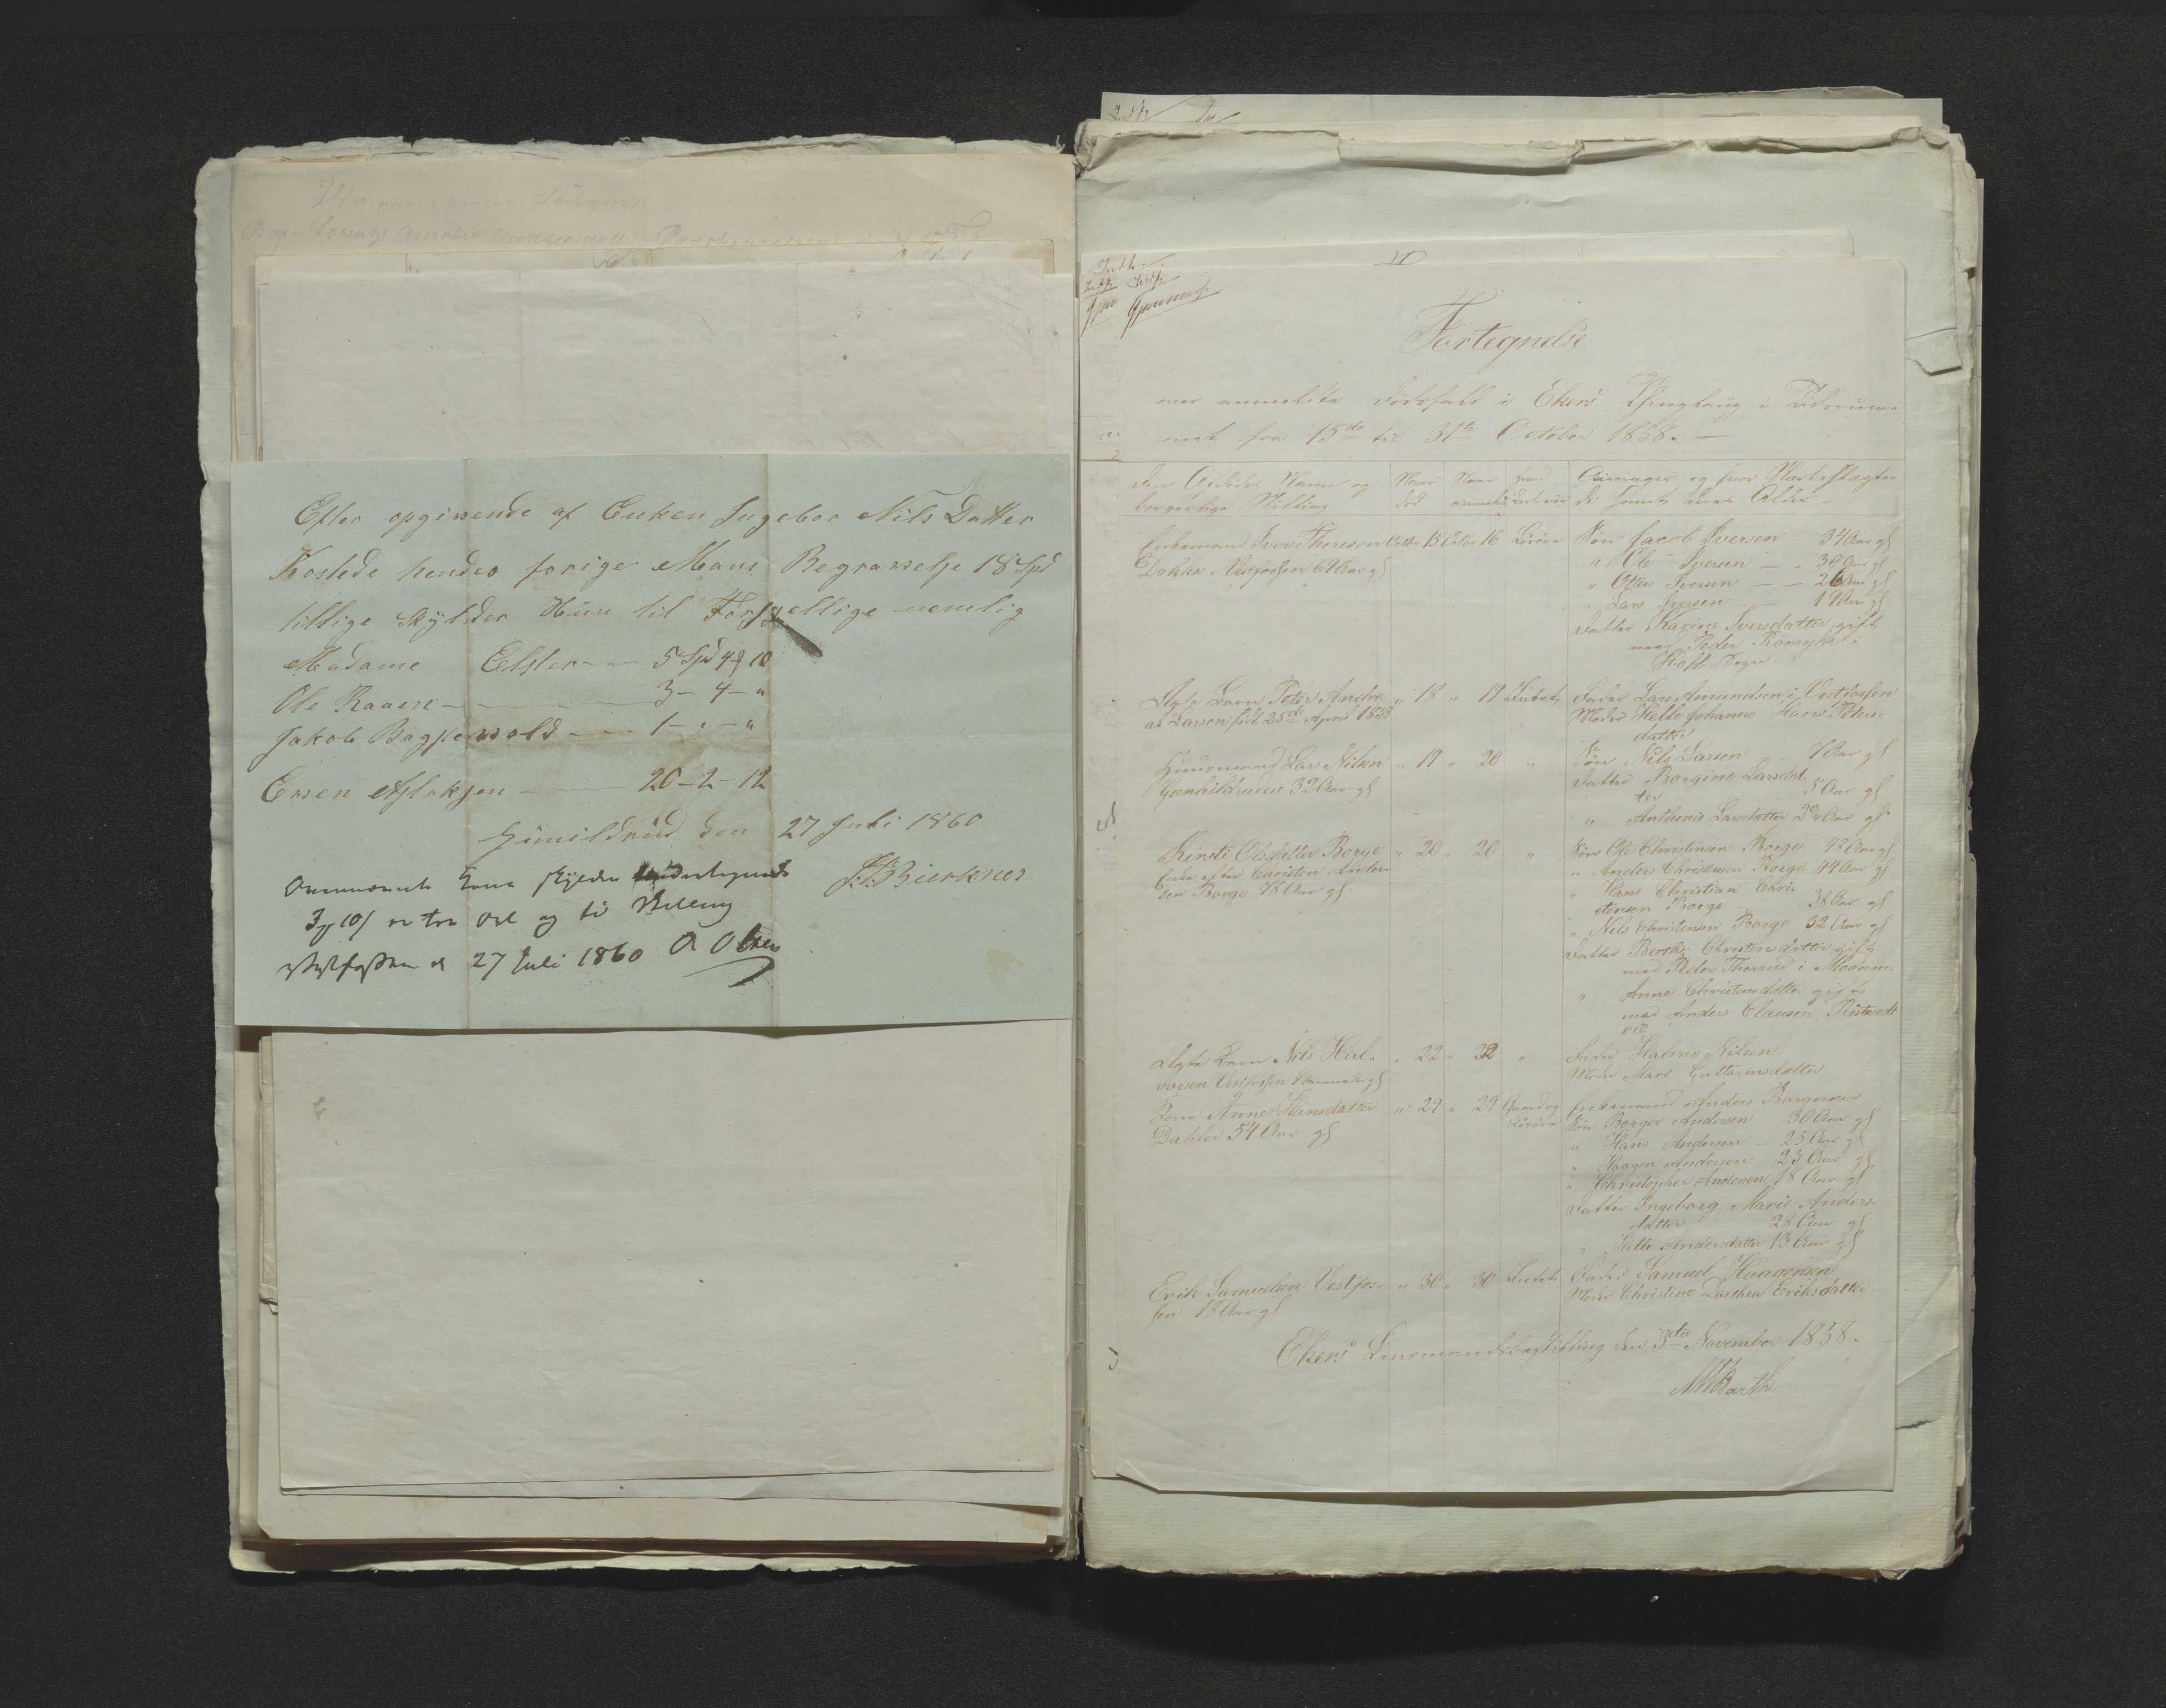 Barn Lorentze Amalie
Efter opgivende af Enken Ingebor Nils Datter
Kostede hendes forige Mans Begravelse 18 Spd
tillige Skylder Hun til Forskellige nemlig
Madame Elster 5 Spd 4 ƒ 10
Ole Raaen 3 - 4 - "
Jakob Bagge 1 - " - "
Even Aslaksen 20 - 2 - 12
den 27 Juli 1860
J. Bierknes
Kone skylder undertegnede
og ti Skilling
27 Juli 1860 A Olsen
Fortegnelse
over anmeldte Dødsfald i Ekers Thinglaug i Tidsrum-
met fra 15de til 31te October 1858. —
Den Afdødes Navn og
borgerlige Stilling
Naar
død
Naar
anmeldt
Arvinger og hvor Myndlinge
de samt deres Alder
Enkemand Iver Thoresen Octbr 15 Octbr 16 Løsøre
Dokka i Vestfossen 69 Aar gl
Søn Jacob Iversen 34 Aar gl
" Ole Iversen — 30 Aar gl
" Otter Iversen — 26 Aar gl
" Lars Iversen 19 Aar gl
Datter Karine Iversdatter gift
med Peder
Ægte Barn Peter Andre- " 18 " 19 Intet
as Larsen født 25de April 1858
Fader Lars Amundsen i Vestfossen
Moder Helle Johanne Hans Peters-
datter
Huusmand Lars Nilsen " 19 " 20 "
Gunhildrudeie 32 Aar gl
Søn Nils Larsen 7 Aar gl
Datter Borgine Larsdat-
ter 5 Aar gl
" Anthonie Larsdatter Aar gl
Kirsti Olsdatter Borge " 20 " 20 "
Enke efter Christen Ander-
sen Borge 78 Aar gl
Søn Ole Christensen Borge 42 Aar gl
" Anders Christensen Borge 44 Aar gl
" Hans Christian Chri-
stensen Borge 38 Aar gl
" Nils Christensen Borge 32 Aar gl
Datter Berthe Christensdatter gift
med Peder Thorrud i Modum
" Anne Christensdatter gift
med Anders Clausen
Ægte Barn Nils Hal- " 22 " 22 "
vorsen Vestfossen
Fader Halvor Nilsen
Moder Mari Guttormsdatter
Kone Anne Hansdatter " 29 " 29 Gaard og
Løsøre
Dahler 54 Aar gl
Enkemand Anders Borgersen
Søn Borger Andersen 30 Aar gl
" Hans Andersen 25 Aar gl
" Haagen Andersen 23 Aar gl
" Christopher Andersen 18 Aar gl
Datter Ingeborg Marie Anders-
datter 28 Aar gl
" Helle Andersdatter 13 Aar gl
Erik Samuelsen Vestfos- " 30 " 30 Intet
sen 18 Aar gl
Fader Samuel Haagensen
Moder Christine Dorthea Eriksdatter
Ekers Lensmandsbestilling den 3die November 1858.
Barth